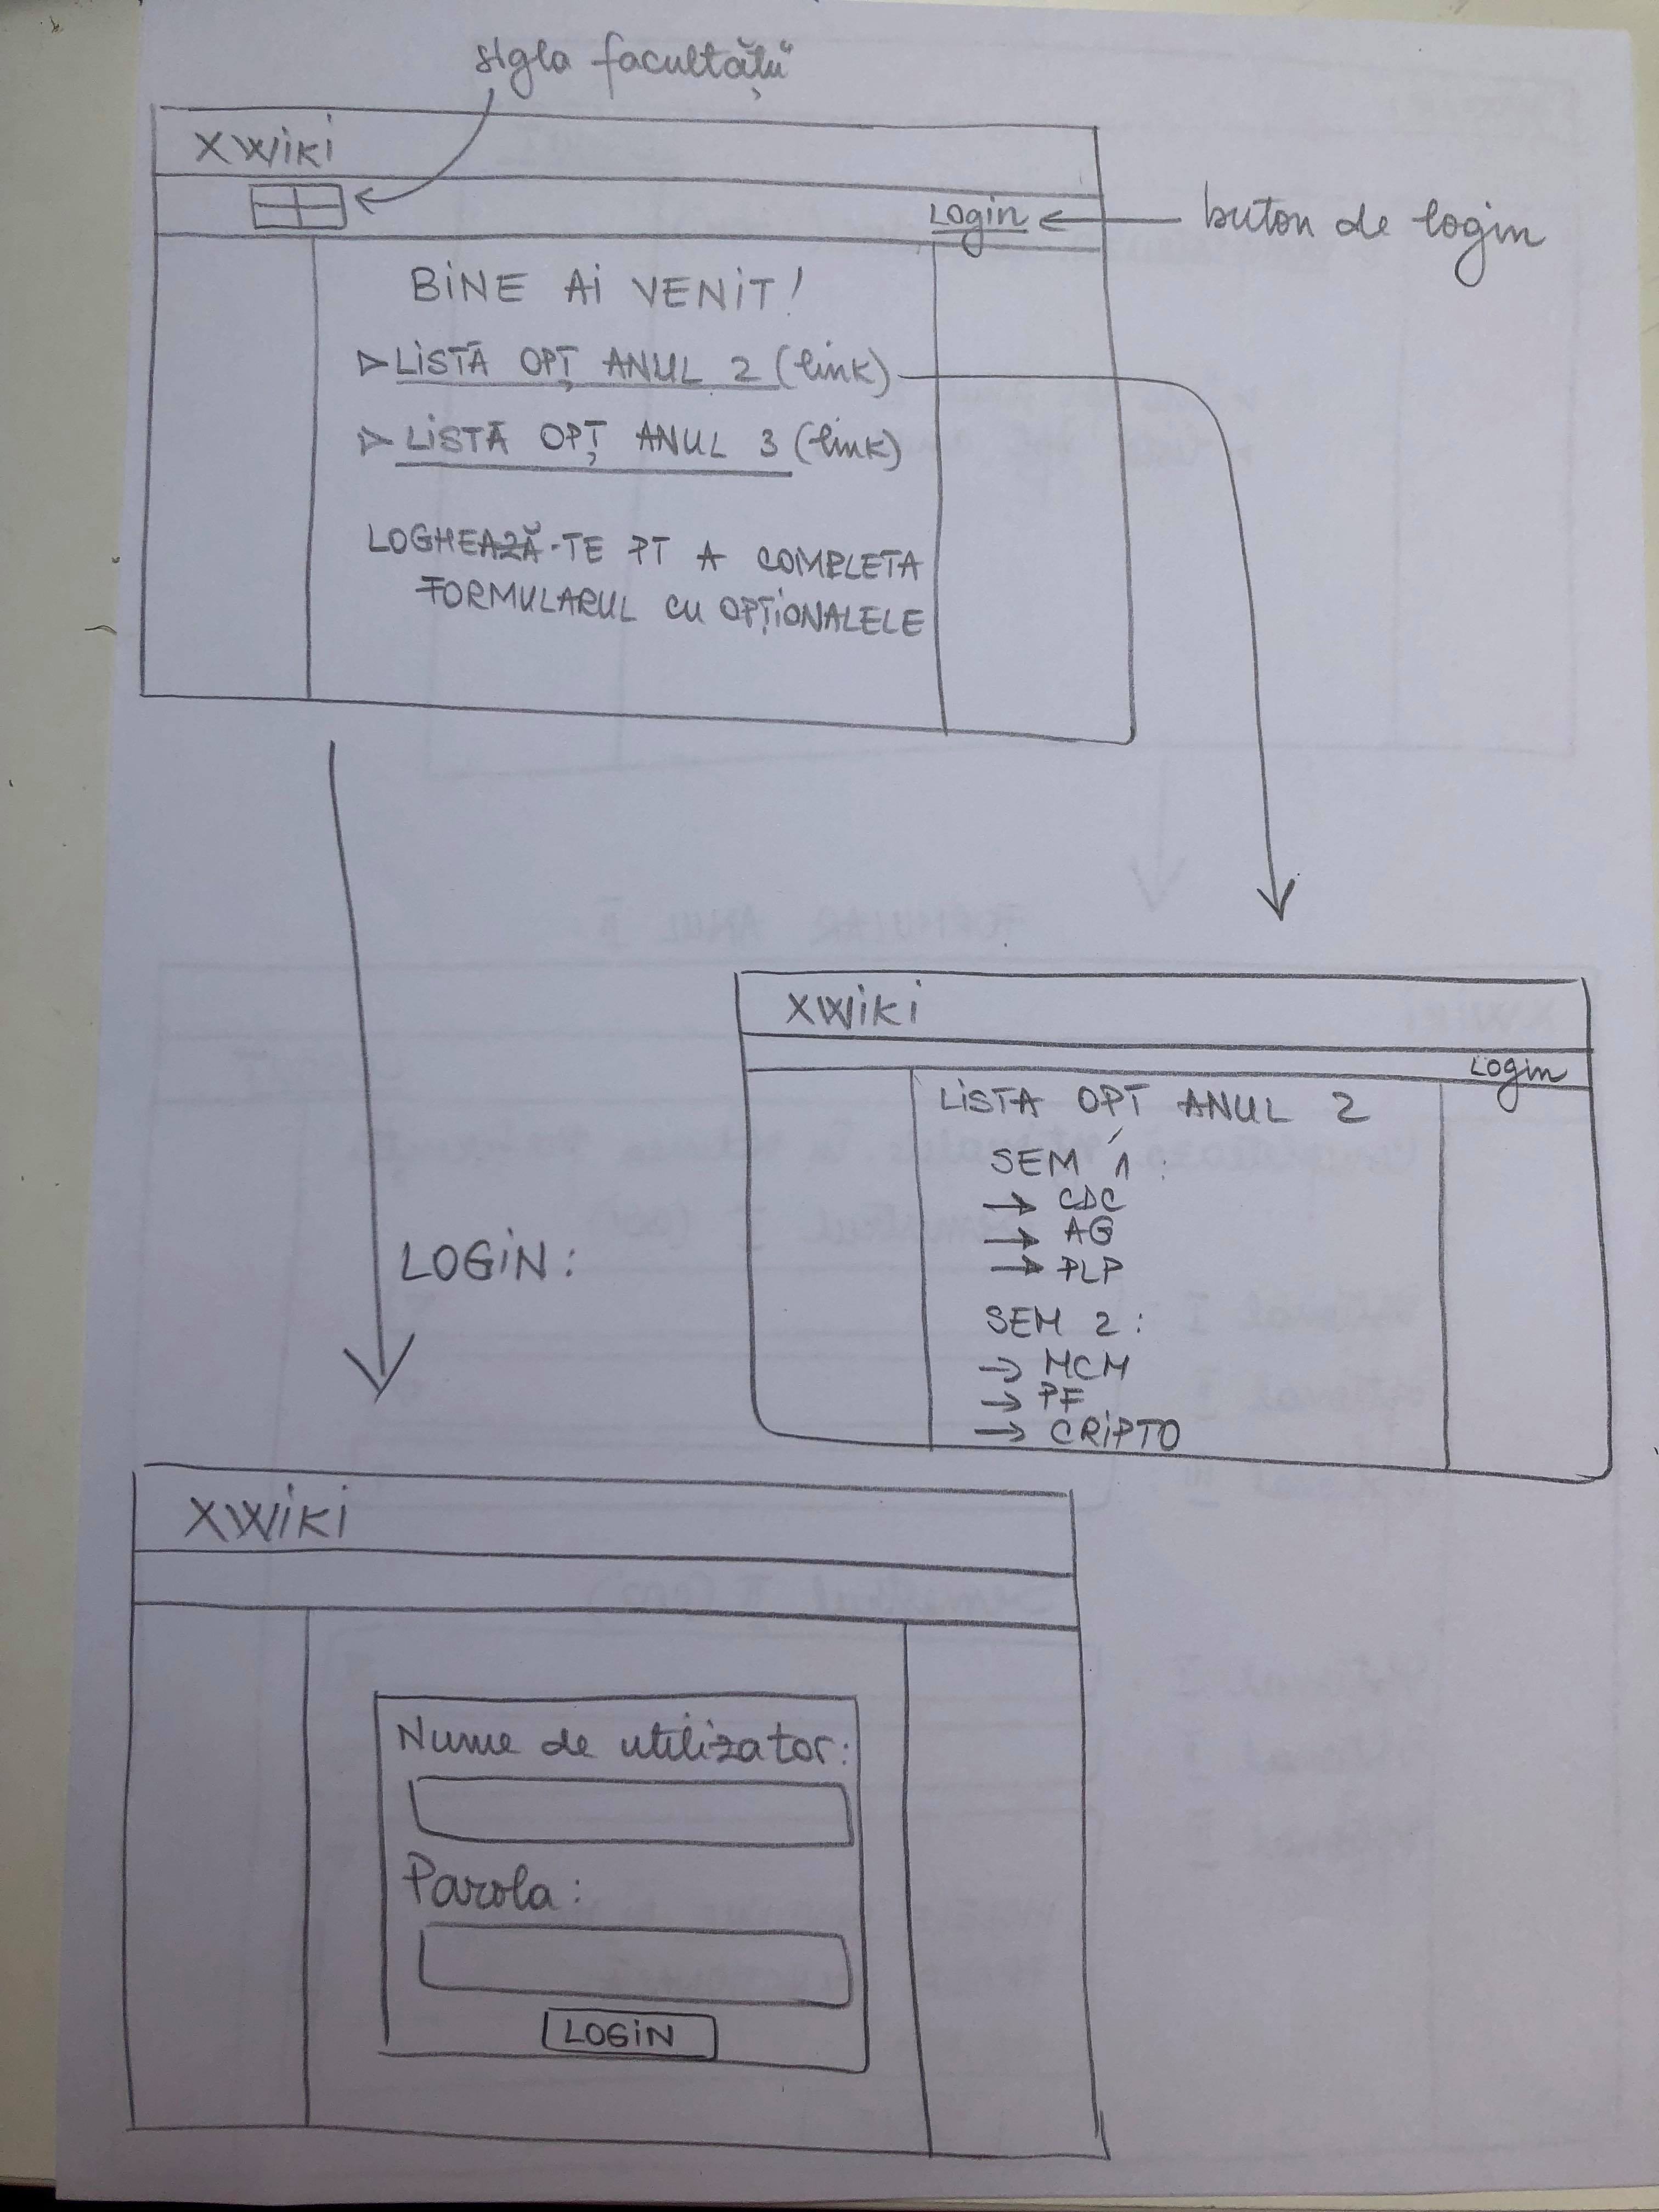 sigla facultății
XWiki
Login
buton de login
BINE AI VENIT!
LISTĂ OPȚ ANUL 2 (link)
LISTĂ OPȚ ANUL 3 (link)
LOGHEAZĂ-TE PT A COMPLETA
FORMULARUL CU OPȚIONALELE
XWiki
Login
LISTA OPT ANUL 2
SEM 1:
→ CDC
→ AG
→ PLP
SEM 2:
→ MCM
→ PF
→ CRIPTO
LOGIN:
XWiki
Nume de utilizator:
Parola:
LOGIN